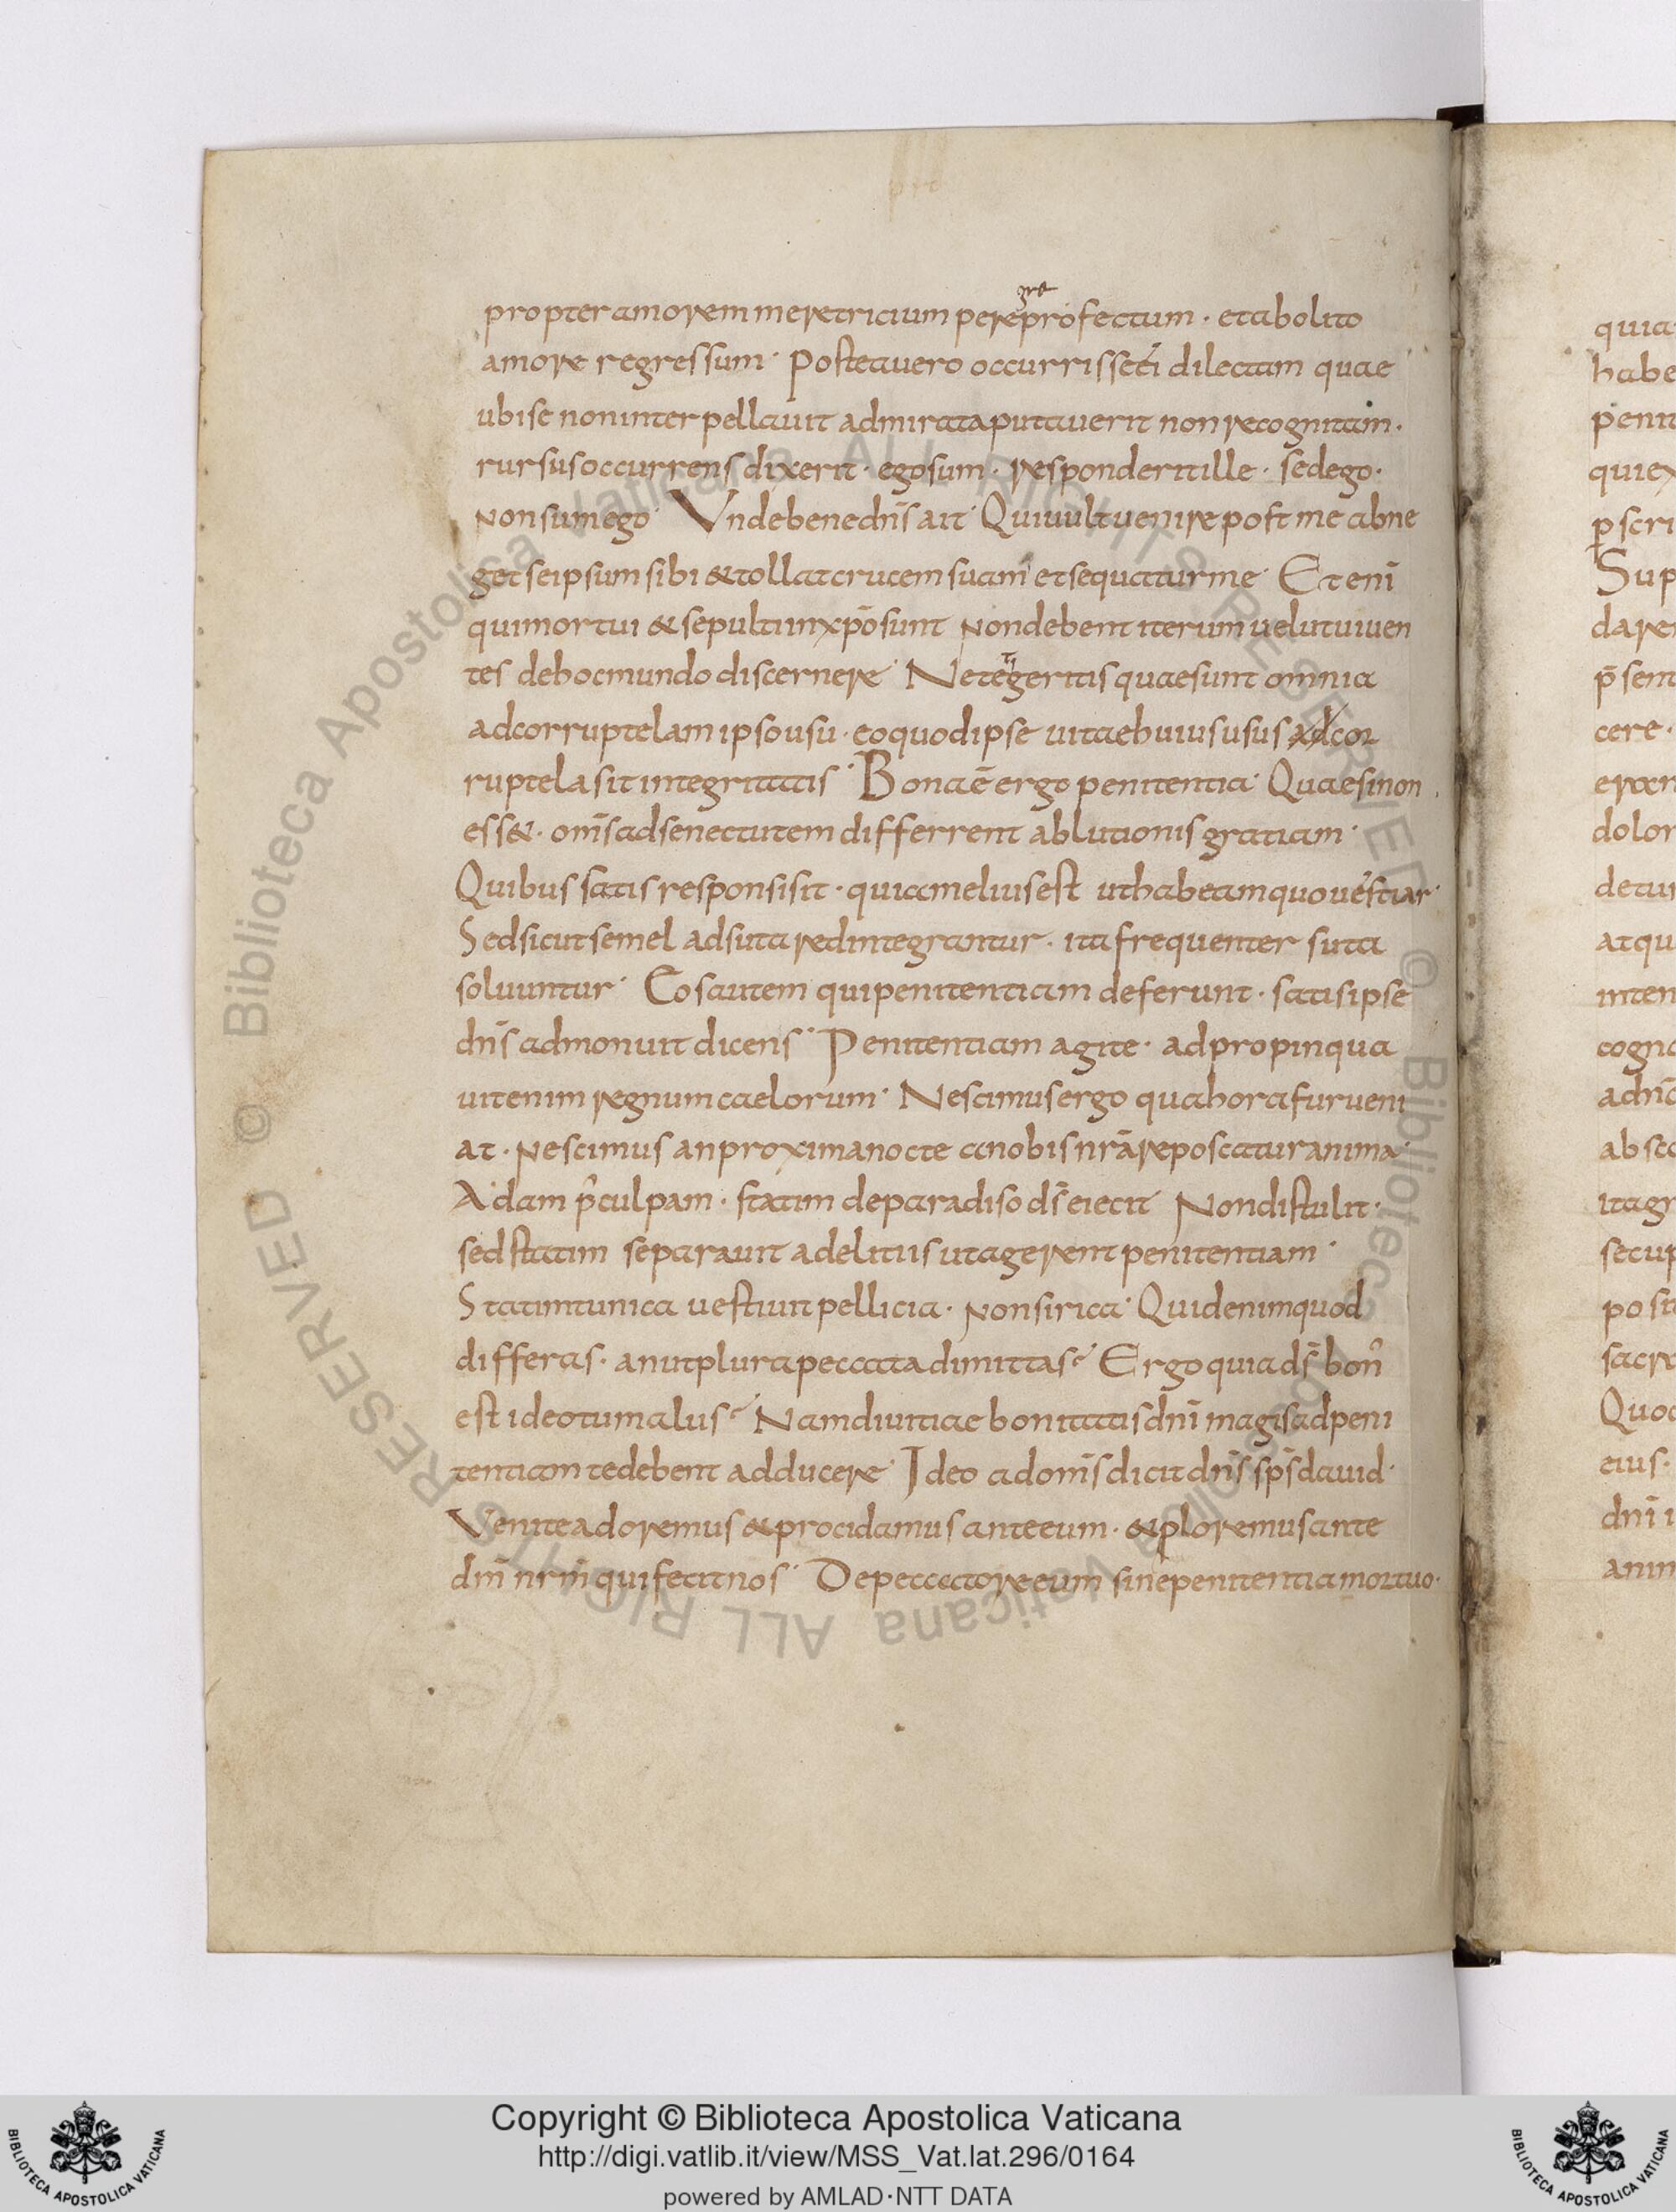 propter amorem meretricium peregre profectum · et abolito
amore regressum · postea uero occurrisse ei dilectam quae
ubi se non interpellauit admirata putauerit non recognitam ·
rursus occurrens dixerit · ego sum · responderit ille · sed ego ·
non sum ego · Vnde bene dn̄s ait · Qui uult uenire post me abne
get se ipsum sibi & tollat crucem suam et sequatur me · Eteni
qui mortui & sepulti in xp̄o sunt non debent iterum uelut uiuen
tes de hoc mundo discernere · Ne tetigeritis quae sunt omnia
ad corruptelam ipso usu · eo quod ipse uitae huius usus ad cor
ruptela sit integritatis · Bona ē ergo penitentia · Quae si non
ess& · om̄s ad senectutem differrent ablutionis gratiam ·
Quibus satis responsi sit · quia melius est ut habeam quo uestiar ·
Sed sicut semel adsuta redintegrantur · ita frequenter suta
soluuntur · Eos autem qui penitentiam deferunt · satis ipse
dn̄s admonuit dicens · Penitentiam agite · adpropinqua
uit enim regnum caelorum · Nescimus ergo qua hora fur ueni
at · nescimus an proxima nocte a nobis nr̄a reposcatur anima ·
Adam p̄ culpam · statim de paradiso ds̄ eiecit Non distulit ·
sed statim separauit a delitiis ut agerent penitentiam ·
Statim tunica uestiuit pellicia · non sirica · Quid enim quod
differas · an ut plura peccata dimittas? Ergo quia ds̄ bon᾿
est ideo tu malus? Nam diuitiae bonitatis dn̄i magis ad peni
tentiam te debent adducere · Ideo ad om̄s dicit dn̄s sp̄s dauid ·
Venite adoremus & procidamus ante eum · & ploremus ante
dn̄m nr̄m qui fecit nos · De peccatore eum sine penitentia mortuo ·
quia
habe
penit
qui ex
p̱ scri
Sup
daren
p̄ sent
cere ·
eran
dolor
detur
atqu
inten
cogno
ad hā
absco
ita gr
secu
posit
sacra
Quod
eius ·
dn̄i i
anim
© Biblioteca Apostolica Vaticana ALL RIGHTS RESERVED © Biblioteca Apostolica Vaticana ALL RIGHTS RESERVED
BIBLIOTECA APOSTOLICA VATICANA
Copyright © Biblioteca Apostolica Vaticana
http://digi.vatlib.it/view/MSS_Vat.lat.296/0164
powered by AMLAD·NTT DATA
BIBLIOTECA APOSTOLICA VATICANA